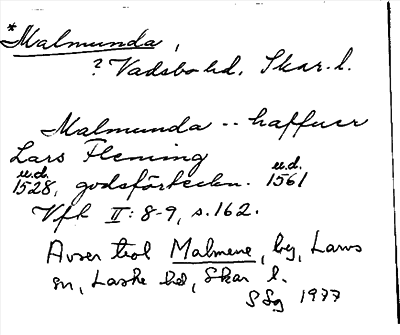 *Malmunda,
? Vadsbo hd, Skar. l.
Malmunda -- haffuer
Lars Fleming
u.d. 1528, godsförteckn. u.d. 1561
Vfk II: 8-9, s. 162.
Avser trol Malmene, by, Larvs
sn, Laske hd, Skar l.
SSg 1977